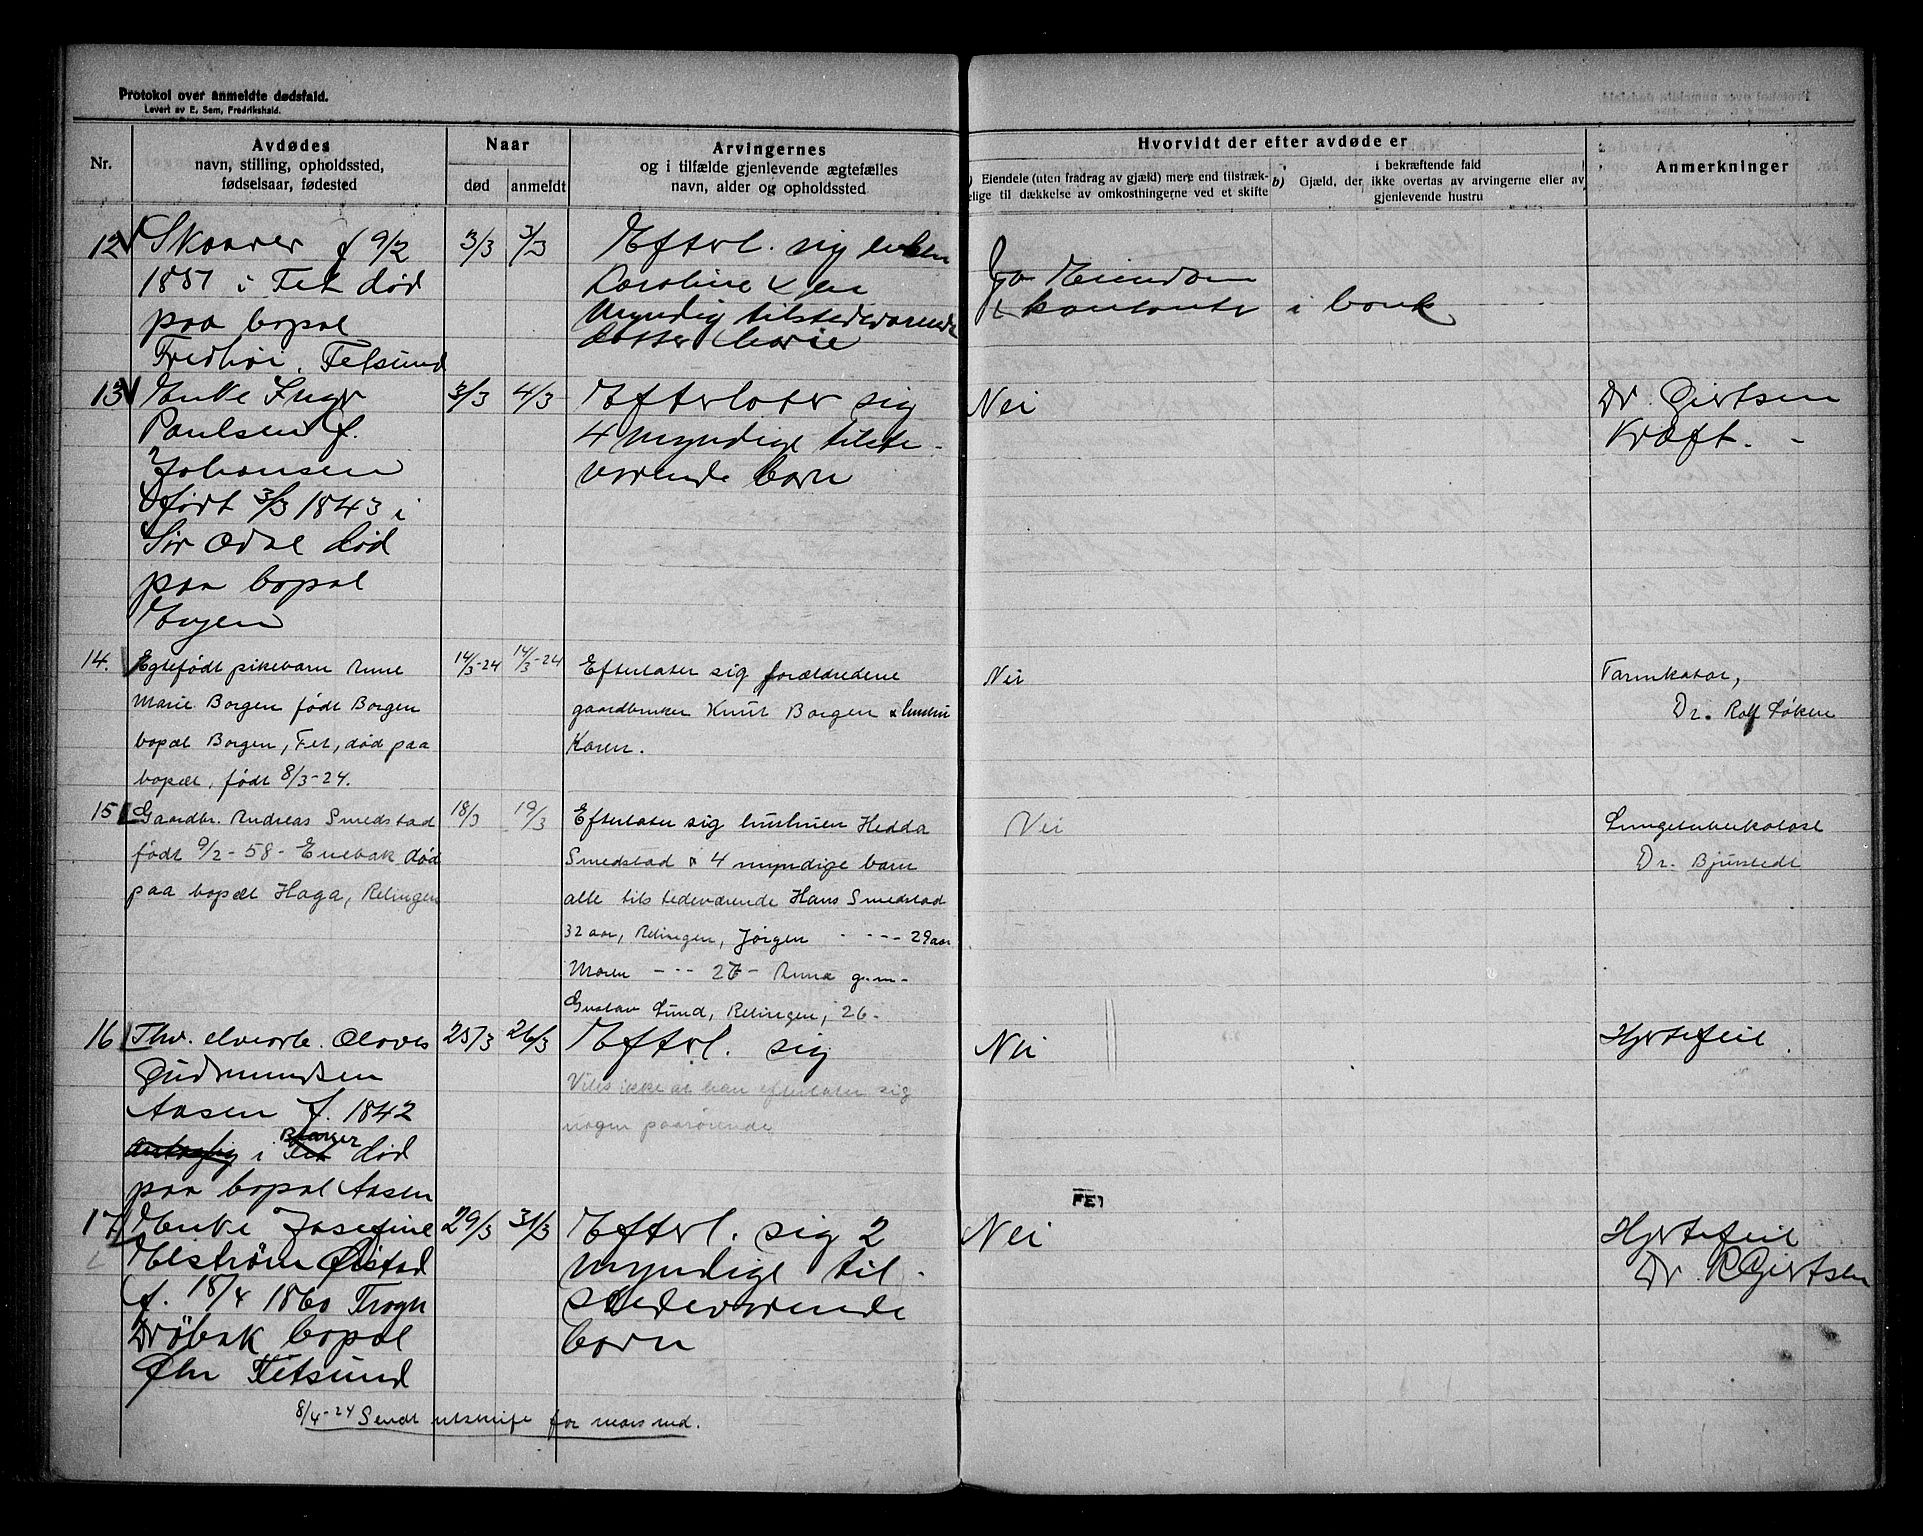 Protokol over anmeldte dødsfald.
Levert av E. Sem, Fredrikshald.
Nr.
Avdødes
navn, stilling, opholdssted,
fødselsaar, fødested
Naar
død
anmeldt
Arvingernes
og i tilfælde gjenlevende ægtefælles
navn, alder og opholdssted
Hvorvidt der efter avdøde er
Eiendele (uten fradrag av gjæld) mere end tilstræk-
elige til dækkelse av omkostningerne ved et skifte
b) Gjæld, der
i bekræftende fald
ikke overtas av arvingerne eller av
gjenlevende hustru
Anmerkninger
12
Skaarer f 9/2
1857 i Fet død
paa bopæl
Fredhøi, Fetsund
3/3
3/3
Efterl. sig enken
Caroline & en
myndig tilstedeværende
datter Marie
Ja Eiendom
& kontanter i bank
13
Enke Inger
Paulsen f.
Johansen
født 3/3 1843 i
Sør Odal død
paa bopæl
Engen
3/3
4/3
Efterlater sig
4 myndige tilste-
værende barn
Nei
Dr. Giertsen
Kræft. -
14.
Egtefødt pikebarn Anne
Marie Borgen født Borgen
bopæl Borgen, Fet, død paa
bopæl, født 8/3-24.
14/3-24
14/3-24
Efterlater sig forældrene
gaardbruker Knut Borgen & hustru
Karen.
Nei
Tarmkatar,
Dr. Rolf Løken
15
Gaardbr. Andreas Smedstad
født 9/2-58- Enebak død
paa bopæl Haga, Relingen
18/3
19/3
Efterlater sig hustruen Hedda
Smedstad & 4 myndige barn
alle tilstedeværende Hans Smedstad
32 aar, Relingen, Jørgen - - - - 29 aar
Maren - - - 26 - Anna g.m-
Gustav Lund, Relingen, 26-
Nei
Lungetuberkolose
Dr. Bjurstedt
16
Thv. elvearb. Oloves
Gudmundsen
Aasen f. 1842
antagelig i Fet Berger død
paa bopæl Aasen
25/3
26/3
Efterl. sig
Vites ikke at han efterlater sig
nogen paarørende
Nei
Hjertefeil.
FET
17
Enke Josefine
Elstrøm Øistad
f. 18/4 1860 Trogn
Drøbak bopæl
Fetsund
29/3
31/3
Efterl. sig 2
myndige til-
stedeværende
barn
Nei
Hjertefeil
Dr. R Giertsen
8/4-24 Sendt utskrift for mars md.